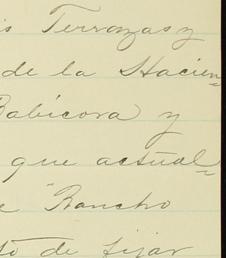 is Terrazas y
de la Hacien-
Babicora y
que actual-
e "Rancho
tó de fijar